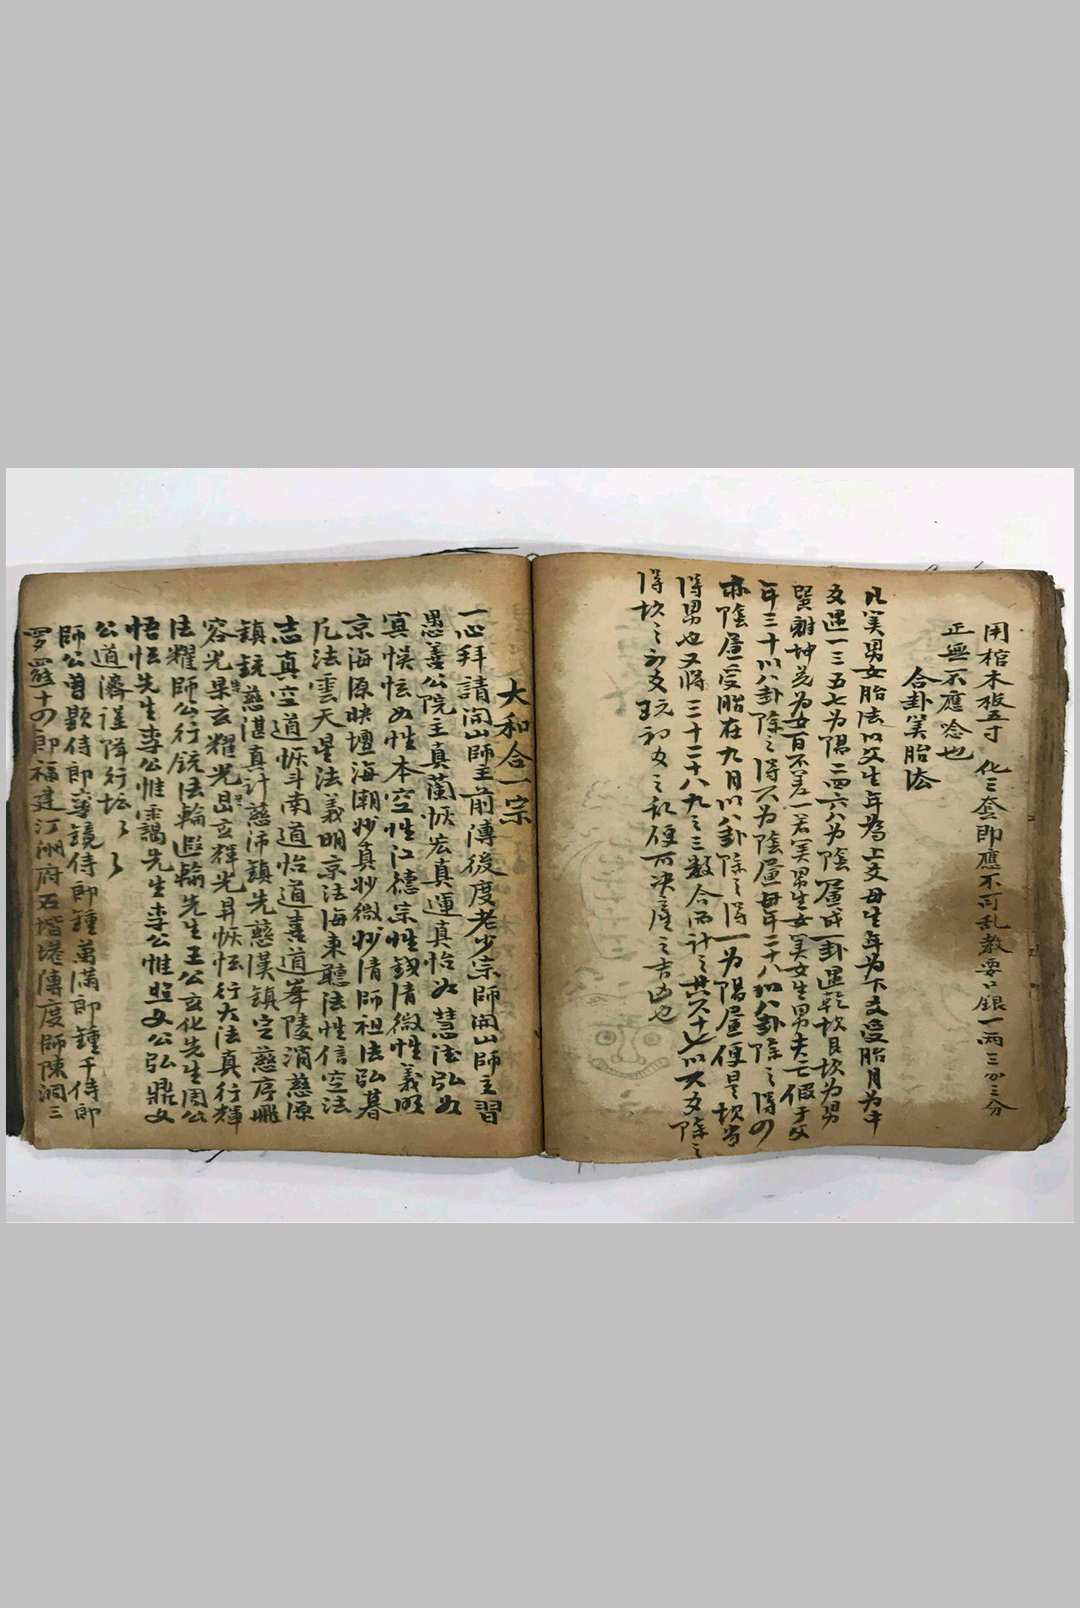 用棺木板五寸 化三套即應不可乱教要口銀一両三分三分
正無不應唸也
合卦筭胎法
凡筭男女胎法以父生年為上爻母生年為下爻受胎月为中
爻遇一三五七为陽二四六八为陰屬成一卦遇乾坎艮坎为男
巽離坤兑为女百不差一若筭男生女筭女生男夫亡假于父
年三十以八卦除之得六为陰屬母年二十八和八卦除之得四
亦陰屬受胎在九月以八卦除之得一为陽屬便是坎当
得男也又将三十二十八九之三数合而計之共六十七以六爻除之
得坎之初爻玩初爻之乱便可决產之吉凶也
大和合一宗
一心拜請闾山師主前傳後度老少宗師闾山師主習
愚善公院主真蘭恢宏真運真怡如慧法弘如
寘悮怯如性本空性江德宗性錢清微性義明
京海源映壇海潮妙真妙微妙清師祖法弘暮
凡法雲天星法義明京法海東聽法性信空法
志真空道恢斗南道怡道喜道峯陵清慈源
鎮鋭慈湛真計慈沛鎮先慈漢鎮定慈序飛
容光杲玄耀光昌玄輝光昇恢怯行大法真行輝
法耀師公行鋭法輪遐輪先生王公玄化先生周公
悟怯先生李公惟靄先生李公惟照文公弘鼎文
公道濟謹降行坛
師公曾顯侍郎尊鏡侍郎鍾萬滿郎鍾千侍郎
罗羅十四郎福建汀洲府五增堪傳度師陳洞三